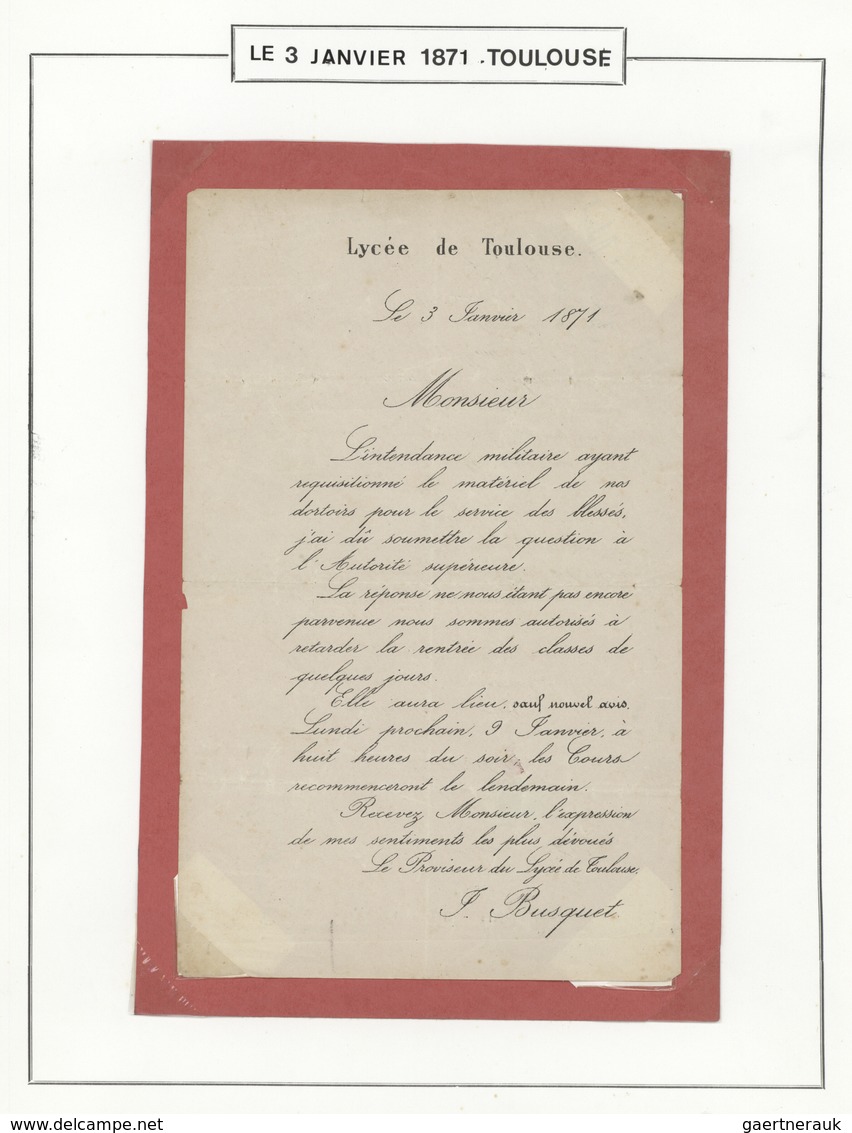 LE 3 JANVIER 1871 - TOULOUSE
Lycée de Toulouse.
Le 3 Janvier 1871
Monsieur
L'intendance militaire ayant
requisitionné le matériel de nos
dortoirs pour le service des blessés,
j'ai dû soumettre la question à
l'Autorité supérieure.
La réponse ne nous étant pas encore
parvenue nous sommes autorisés à
retarder la rentrée des classes de
quelques jours.
Elle aura lieu, sauf nouvel avis,
Lundi prochain, 9 Janvier, à
huit heures du soir; les Cours
recommenceront le lendemain.
Recevez, Monsieur, l'expression
de mes sentiments les plus dévoués
Le Proviseur du Lycée de Toulouse.
J. Busquet
gaertnerauk